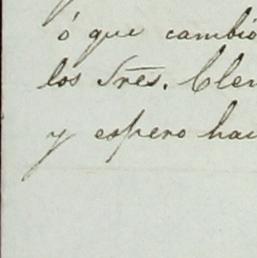 ó que cambió
los Sres. Clem
y espero hac